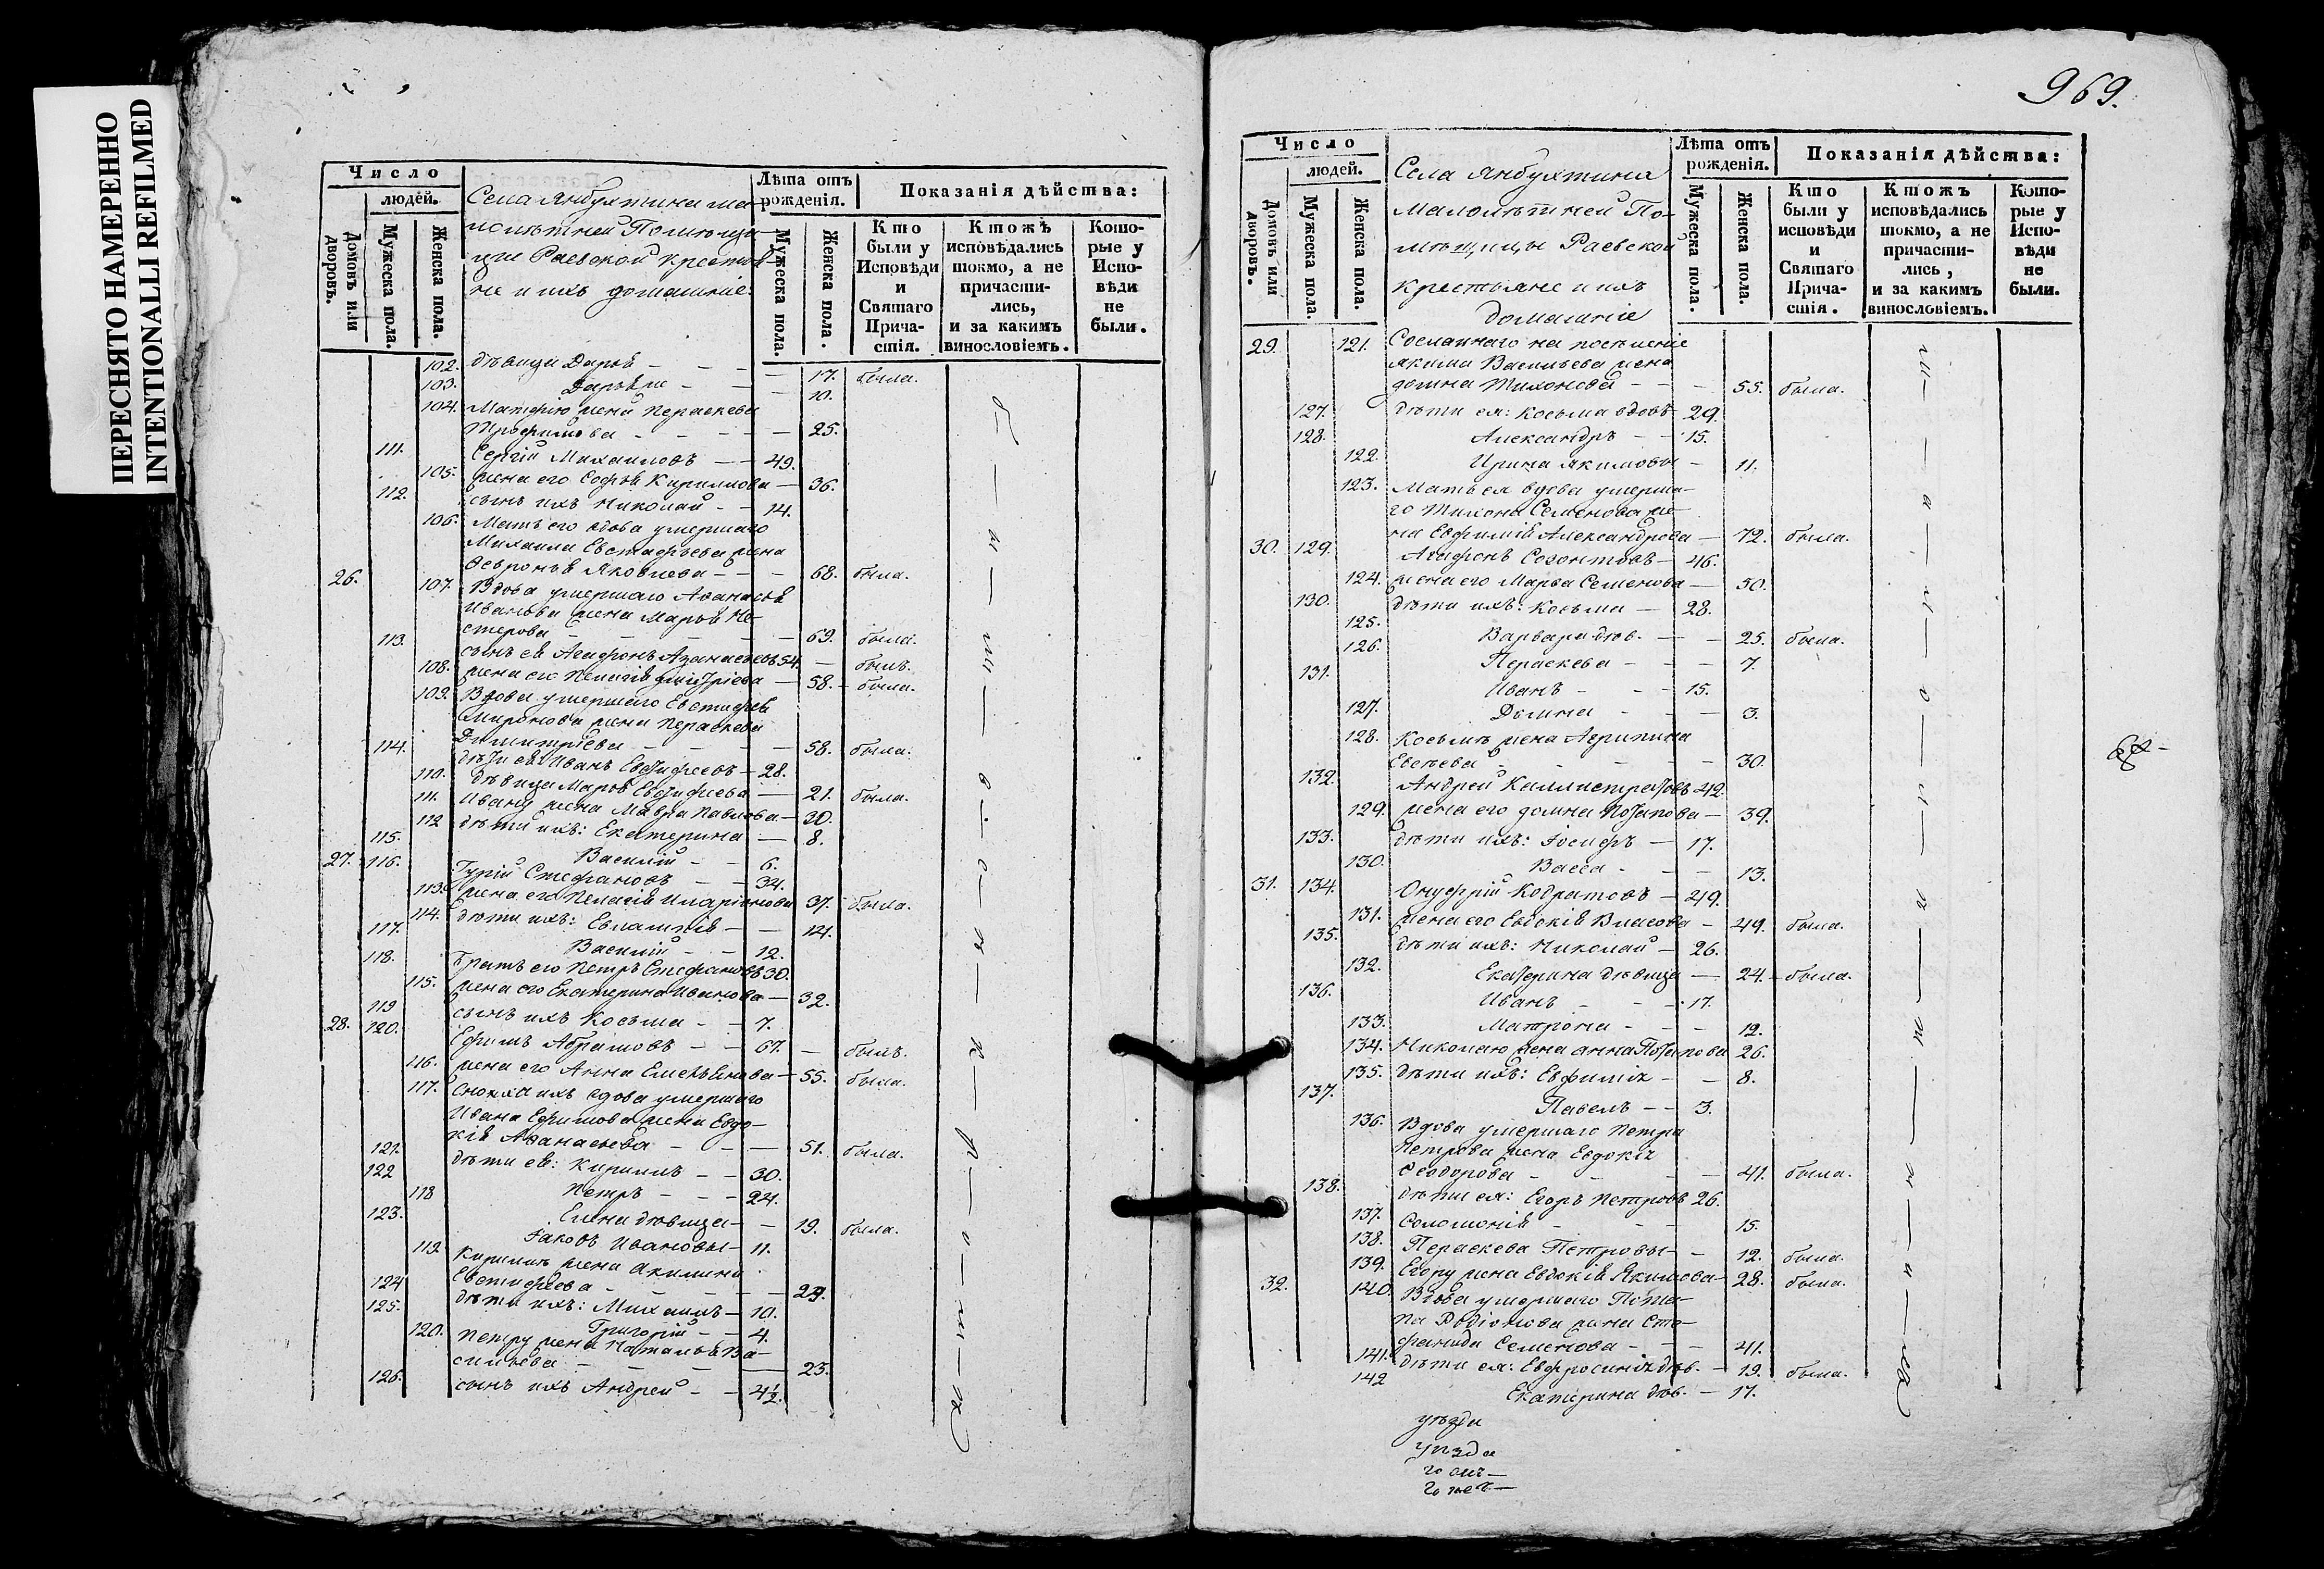 ПЕРЕСНЯТО НАМЕРЕННО
INTENTIONALLI REFILMED
Число
людей.
Домовъ или дворовъ.
Мужеска пола.
Женска пола.
Села Янбухтина ма-
лолѣтней Помѣщи-
цы Раевской крестья-
не и ихъ домашніе.
Лѣта отъ рожденія.
Мужеска пола.
Женска пола.
Показанія дѣйства:
Кто были у Исповѣди и Святаго Прича-стія.
Ктожъ исповѣдались токмо, а не причасти-лись, и за какимъ винословіемъ.
Кото-рые у Испо-вѣди не были.
102. дѣвица Дарья - - - 17. была.
103. Дарья - - 10.
104. Матфію жена Параскева
Трофимова - - - - 25.
111. Сергій Михаиловъ - - 49.
105. жена его Софья Кириллова - 36.
112. сынъ ихъ Николай - - 14.
106. Мать его вдова умершаго
Михаила Евстафьева жена
Февронья Яковлева - - - 68. была.
26. 107. Вдова умершаго Аѳанасья
Иванова жена Марья Не-
стерова - - - - 69. была.
113. сынъ ея Агафонъ Аѳанасьевъ 54. - былъ.
108. жена его Пелагія - 58. - была.
109. Вдова умершаго Евстафья
Миронова жена Параскева
Димитріева - - - - 58. была.
114. дѣти ея: Иванъ Евстафьевъ - 28.
110. дѣвица Марья Евстафьева - 21. была.
111. Ивану жена Мавра Павлова - 30.
112 дѣти ихъ: Екатерина - 8.
115. Василій - - 6.
27. 116. Гурій Стефановъ - - 34.
113. жена его Пелагія Иларіонова 37. была.
114. дѣти ихъ: Евлампія - - 14.
117. Василій - - 12.
118. братъ его Петръ Стефановъ 30.
115. жена его Екатерина Иванова - 32.
119 сынъ ихъ Косьма - - 7.
28. 120. Ефимъ Абрамовъ - - 67. - былъ.
116. жена его Анна Емельянова - 55. была.
117. Сноха ихъ вдова умершаго
Ивана Ефимова жена Евдо-
кія Аѳанасьева - - - 51. была.
121. дѣти ея: Кириллъ - - 30.
122 Петръ - - - 24.
118 Елена дѣвица - - 19. была.
123. Іаковъ Ивановы - 11.
119. Кириллѣ жена Акилина
Евстафьева - - - - 29.
124 дѣти ихъ: Михаилъ - 10.
125. Григорій - - 4.
120. Петру жена Наталья Ва-
сильева - - - - 23.
126. сынъ ихъ Андрей - - 4½.
969.
Число
людей.
Домовъ или дворовъ.
Мужеска пола.
Женска пола.
Села Янбухтина
Малолѣтней По-
мѣщицы Раевской
крестьяне и ихъ
домашніе
Лѣта отъ рожденія.
Мужеска пола.
Женска пола.
Показанія дѣйства:
Кто были у исповѣди и Святаго Прича-стія.
Ктожъ исповѣдались токмо, а не причасти-лись, и за какимъ винословіемъ.
Кото-рые у Испо-вѣди не были.
29. 121. Сосланнаго на поселеніе
Якима Васильева жена
домна Тихонова - - - 55. была.
127. дѣти ея: Косьма вдовъ 29.
128. Александръ - - 15.
122. Ирина Якимовы - 11.
123. Мать ея вдова умерша-
го Тихона Семенова же-
на Евфимія Александрова - 72. была.
30. 129. Агафонъ Созонтовъ - 46.
124. жена его Марья Семенова - 50.
130. дѣти ихъ: Косьма - 28.
125. Варвара дѣв. - - 25. была.
126. Параскева - - - 7.
131. Иванъ - - - 15.
127. Домна - - - 3.
128. Косьмѣ жена Агрипина
Евсеева - - - - 30.
132. Андрей Каллистратовъ 42.
129. жена его домна Потапова - 39.
133. дѣти ихъ: Іосифъ - 17.
130. Васса - - - 13.
31. 134. Онуфрій Кодратовъ - 49.
131. жена его Евдокія Власова - 49. была.
135. дѣти ихъ: Николай - 26.
132. Екатерина дѣвица - 24. - была.
136. Иванъ - - - 17.
133. Матрона - - - 12.
134. Николаю жена Анна Потапова 26.
135. дѣти ихъ: Евфимія - - 8.
137. Павелъ - - 3.
136. Вдова умершаго Петра
Петрова жена Евдокія
Ѳеодорова - - - 41. была.
138. дѣти ея: Егоръ Петровъ 26.
137. Соломонія - - - 15.
138. Параскева Петровы - - 12. была.
139. Егору жена Евдокія Якимова - 28. была.
32. 140. Вдова умершаго Пота-
па Родіонова жена Сте-
фанида Семенова - - - 41.
141. дѣти ея: Евфросинія дѣв. - 19. была.
142 Екатерина дѣв. - 17.
уѣзда
уѣзда